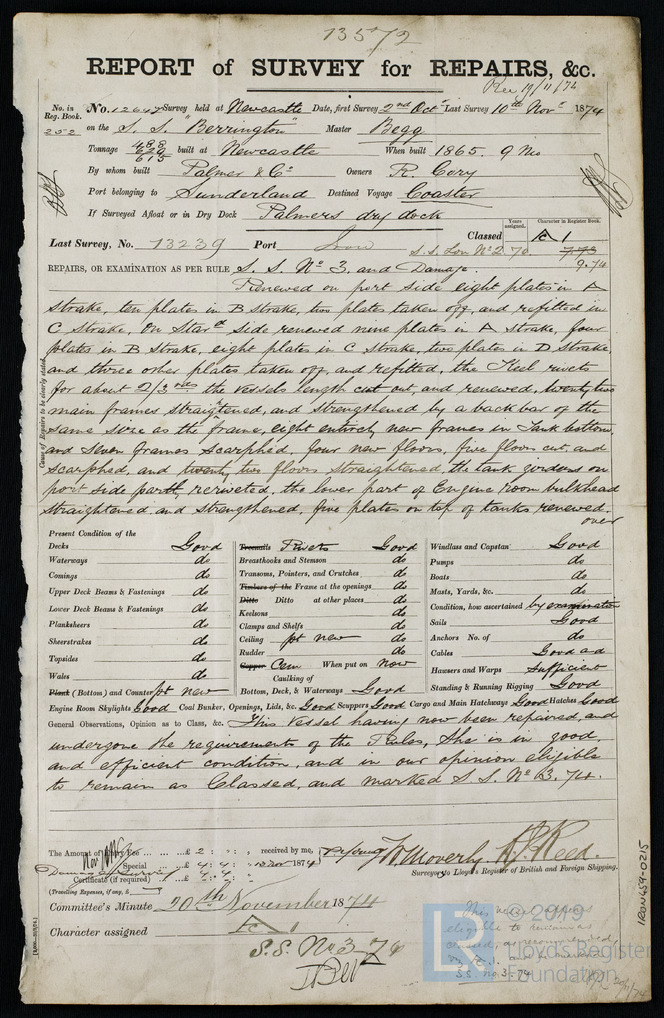 13572
REPORT of SURVEY for REPAIRS, &c.
Rec 19/11/74
No. in Reg. Book. 252
No. 12647 Survey held at Newcastle Date, first Survey 2nd Oct Last Survey 10th Novr 1874
on the S. S. "Berrington" Master Begg
Tonnage 488 629 615 built at Newcastle When built 1865. 9 Mo
By whom built Palmer & Co Owners R. Cory
Port belonging to Sunderland Destined Voyage Coaster
If Surveyed Afloat or in Dry Dock Palmers dry dock
Years assigned. Character in Register Book.
Last Survey, No. 13239 Port Iron Classed A 1
S.S. Lon No 2 70 7.73
9.74
REPAIRS, OR EXAMINATION AS PER RULE S. S. No 3, and Damage.
Renewed on port side eight plates in A
strake, ten plates in B strake, two plates taken off, and refitted in
C strake, On Stard side renewed nine plates in A strake, four
plates in B strake, eight plates in C strake, two plates in D strake,
and three other plates taken off, and refitted, the Keel rivets
for about 2/3rds the vessels length cut out, and renewed, twenty two
main frames straightened, and strengthened by a back bar of the
same size as the frame, eight entirely new frames in Tank bottom
and seven frames scarphed, four new floors, five floors cut, and
scarphed, and twenty two floors straightened, the tank girders on
port side partly reriveted, the lower part of Engine Room bulkhead
straightened, and strengthened, five plates on top of tanks renewed.
over
Cause of Repairs to be clearly stated.
Present Condition of the
Decks Good
Waterways do
Comings do
Upper Deck Beams & Fastenings do
Lower Deck Beams & Fastenings do
Planksheers do
Sheerstrakes do
Topsides do
Wales do
Plank (Bottom) and Counter pt new
Treenails Rivets Good
Breasthooks and Stemson do
Transoms, Pointers, and Crutches do
Timbers of the Frame at the openings do
Ditto Ditto at other places do
Keelsons do
Clamps and Shelfs do
Ceiling pt new do
Rudder do
Copper Cem When put on now
Caulking of
Bottom, Deck, & Waterways Good
Windlass and Capstan Good
Pumps do
Boats do
Masts, Yards, &c. do
Condition, how ascertained by examination
Sails Good
Anchors No. of do
Cables Good ad
Hawsers and Warps Sufficient
Standing & Running Rigging Good
Engine Room Skylights Good Coal Bunker, Openings, Lids, &c. Good Scuppers Good Cargo and Main Hatchways Good Hatches Good
General Observations, Opinion as to Class, &c. This Vessel having now been repaired, and
undergone the requirements of the Rules, She is in good,
and efficient condition, and in our opinion eligible
to remain as Classed, and marked S S. No 3. 74.
The Amount of Entry Fee £ 2 : : received by me,
Special £ 4 : 4 : 12 Nov 1874
Damage Survey
Certificate (if required) £ 4 : 4 :
(Travelling Expenses, if any, £ )
W Moverly. H J Reed.
Surveyor to Lloyd's Register of British and Foreign Shipping.
Committee's Minute 20th November 1874
Character assigned A 1
S.S. No 3 74
This vessel appears
eligible to remain as
classed, as recommended,
S.S. no. 3-74
© 2019
Lloyd's Register
Foundation
IRON459-0215